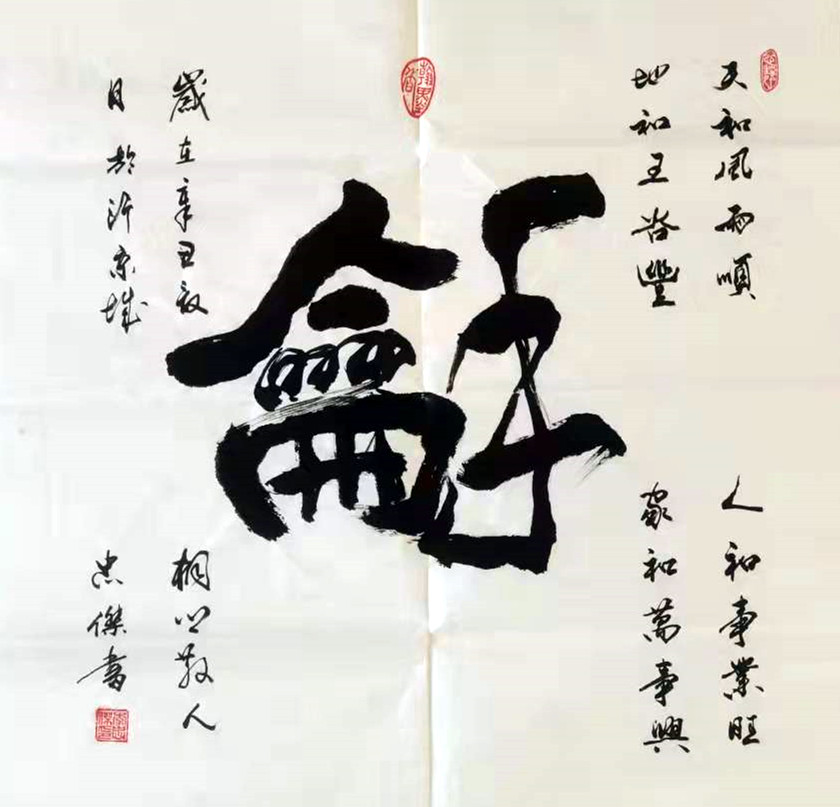 天和風雨順
地和五谷豐
人和事業旺
家和萬事興
龢
歲在辛丑敦
月於沂京城
桐心散人
忠傑書